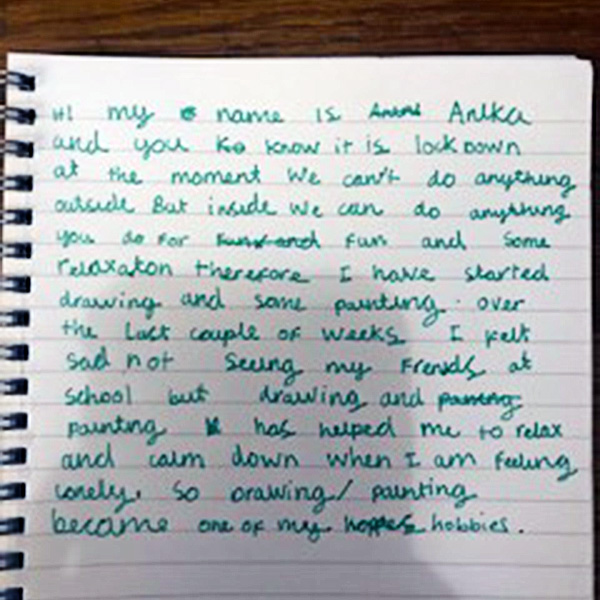 Hi my name is Anika
and you know it is lockdown
at the moment We can't do anything
outside But inside We can do anything
you do for fun and some
relaxaton therefore I have started
drawing and some painting. over
the last couple of weeks I felt
sad not seeing my frends at
school but drawing and
painting has helped me to relax
and calm down when I am feeling
lonely. So drawing/ painting
became one of my hobbies.